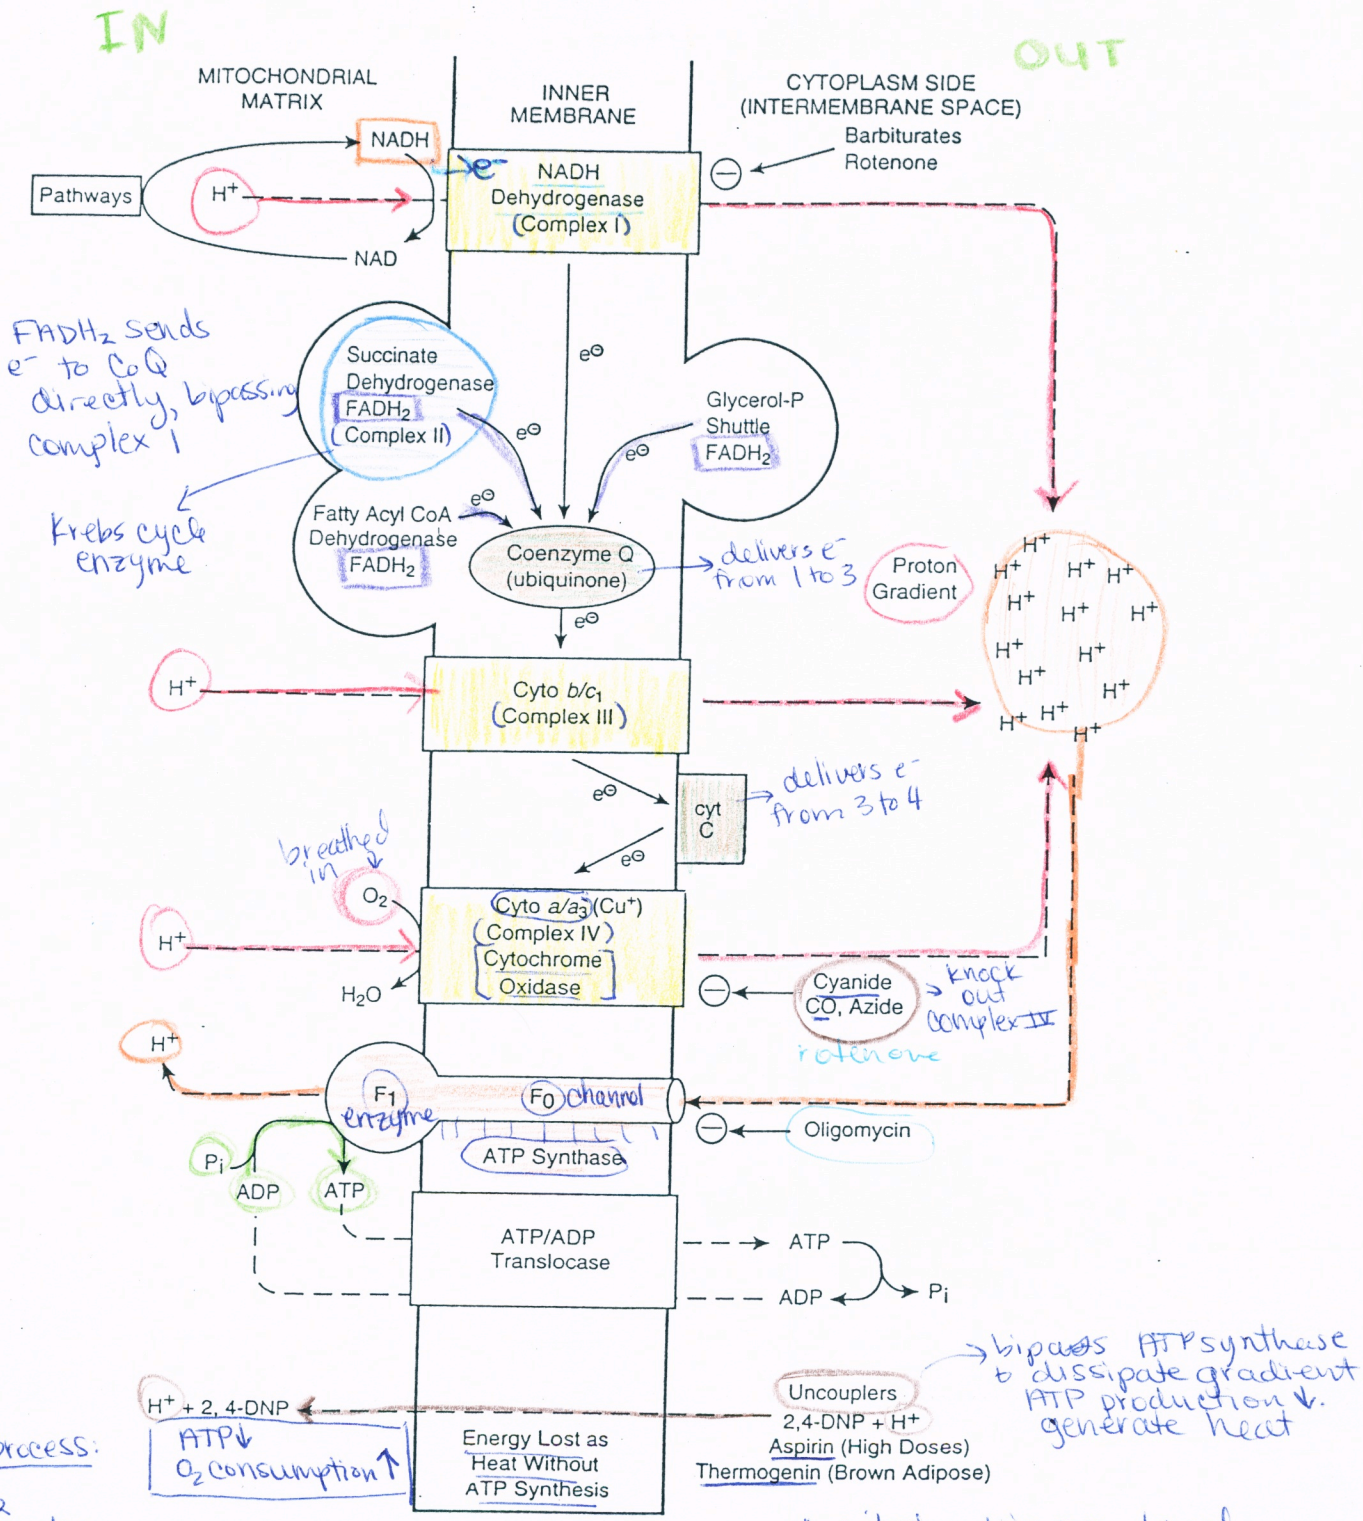 IN
OUT
MITOCHONDRIAL
MATRIX
INNER
MEMBRANE
CYTOPLASM SIDE
(INTERMEMBRANE SPACE)
Barbiturates
Rotenone
NADH
e⁻
Pathways
H⁺
NAD
NADH
Dehydrogenase
(Complex I)
FADH₂ sends
e⁻ to CoQ
directly, bipassing
complex 1
Succinate
Dehydrogenase
FADH₂
(Complex II)
e⊖
e⊖
Glycerol-P
Shuttle
FADH₂
e⊖
Krebs cycle
enzyme
Fatty Acyl CoA
Dehydrogenase
FADH₂
e⊖
Coenzyme Q
(ubiquinone)
delivers e⁻
from 1 to 3
e⊖
Proton
Gradient
H⁺
H⁺ H⁺ H⁺
H⁺ H⁺ H⁺
H⁺ H⁺
H⁺ H⁺
H⁺ H⁺ H⁺
H⁺
Cyto b/c₁
(Complex III)
e⊖
cyt
C
delivers e⁻
from 3 to 4
e⊖
breathed
in
O₂
H⁺
H₂O
Cyto a/a₃ (Cu⁺)
(Complex IV)
[Cytochrome
Oxidase]
⊖
Cyanide
CO, Azide
knock
out
complex IV
rotenone
H⁺
F₁
enzyme
F₀ channel
ATP Synthase
⊖
Oligomycin
Pᵢ
ADP
ATP
ATP/ADP
Translocase
ATP
ADP
Pᵢ
bipass ATP synthase
to dissipate gradient
ATP production ↓.
generate heat
Uncouplers
2,4-DNP + H⁺
Aspirin (High Doses)
Thermogenin (Brown Adipose)
H⁺ + 2, 4-DNP
ATP↓
O₂ consumption ↑
Energy Lost as
Heat Without
ATP Synthesis
process: